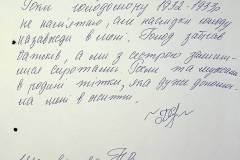 Роки голодомору 1932-1933
не пам'ятаю, але наслідки голоду
назавжди в мені. Голод забрав
батьків, а ми з сестрою залиши-
лися сиротами. Росли та
в родині тітки, яка дуже допомо-
гла мені в житті.